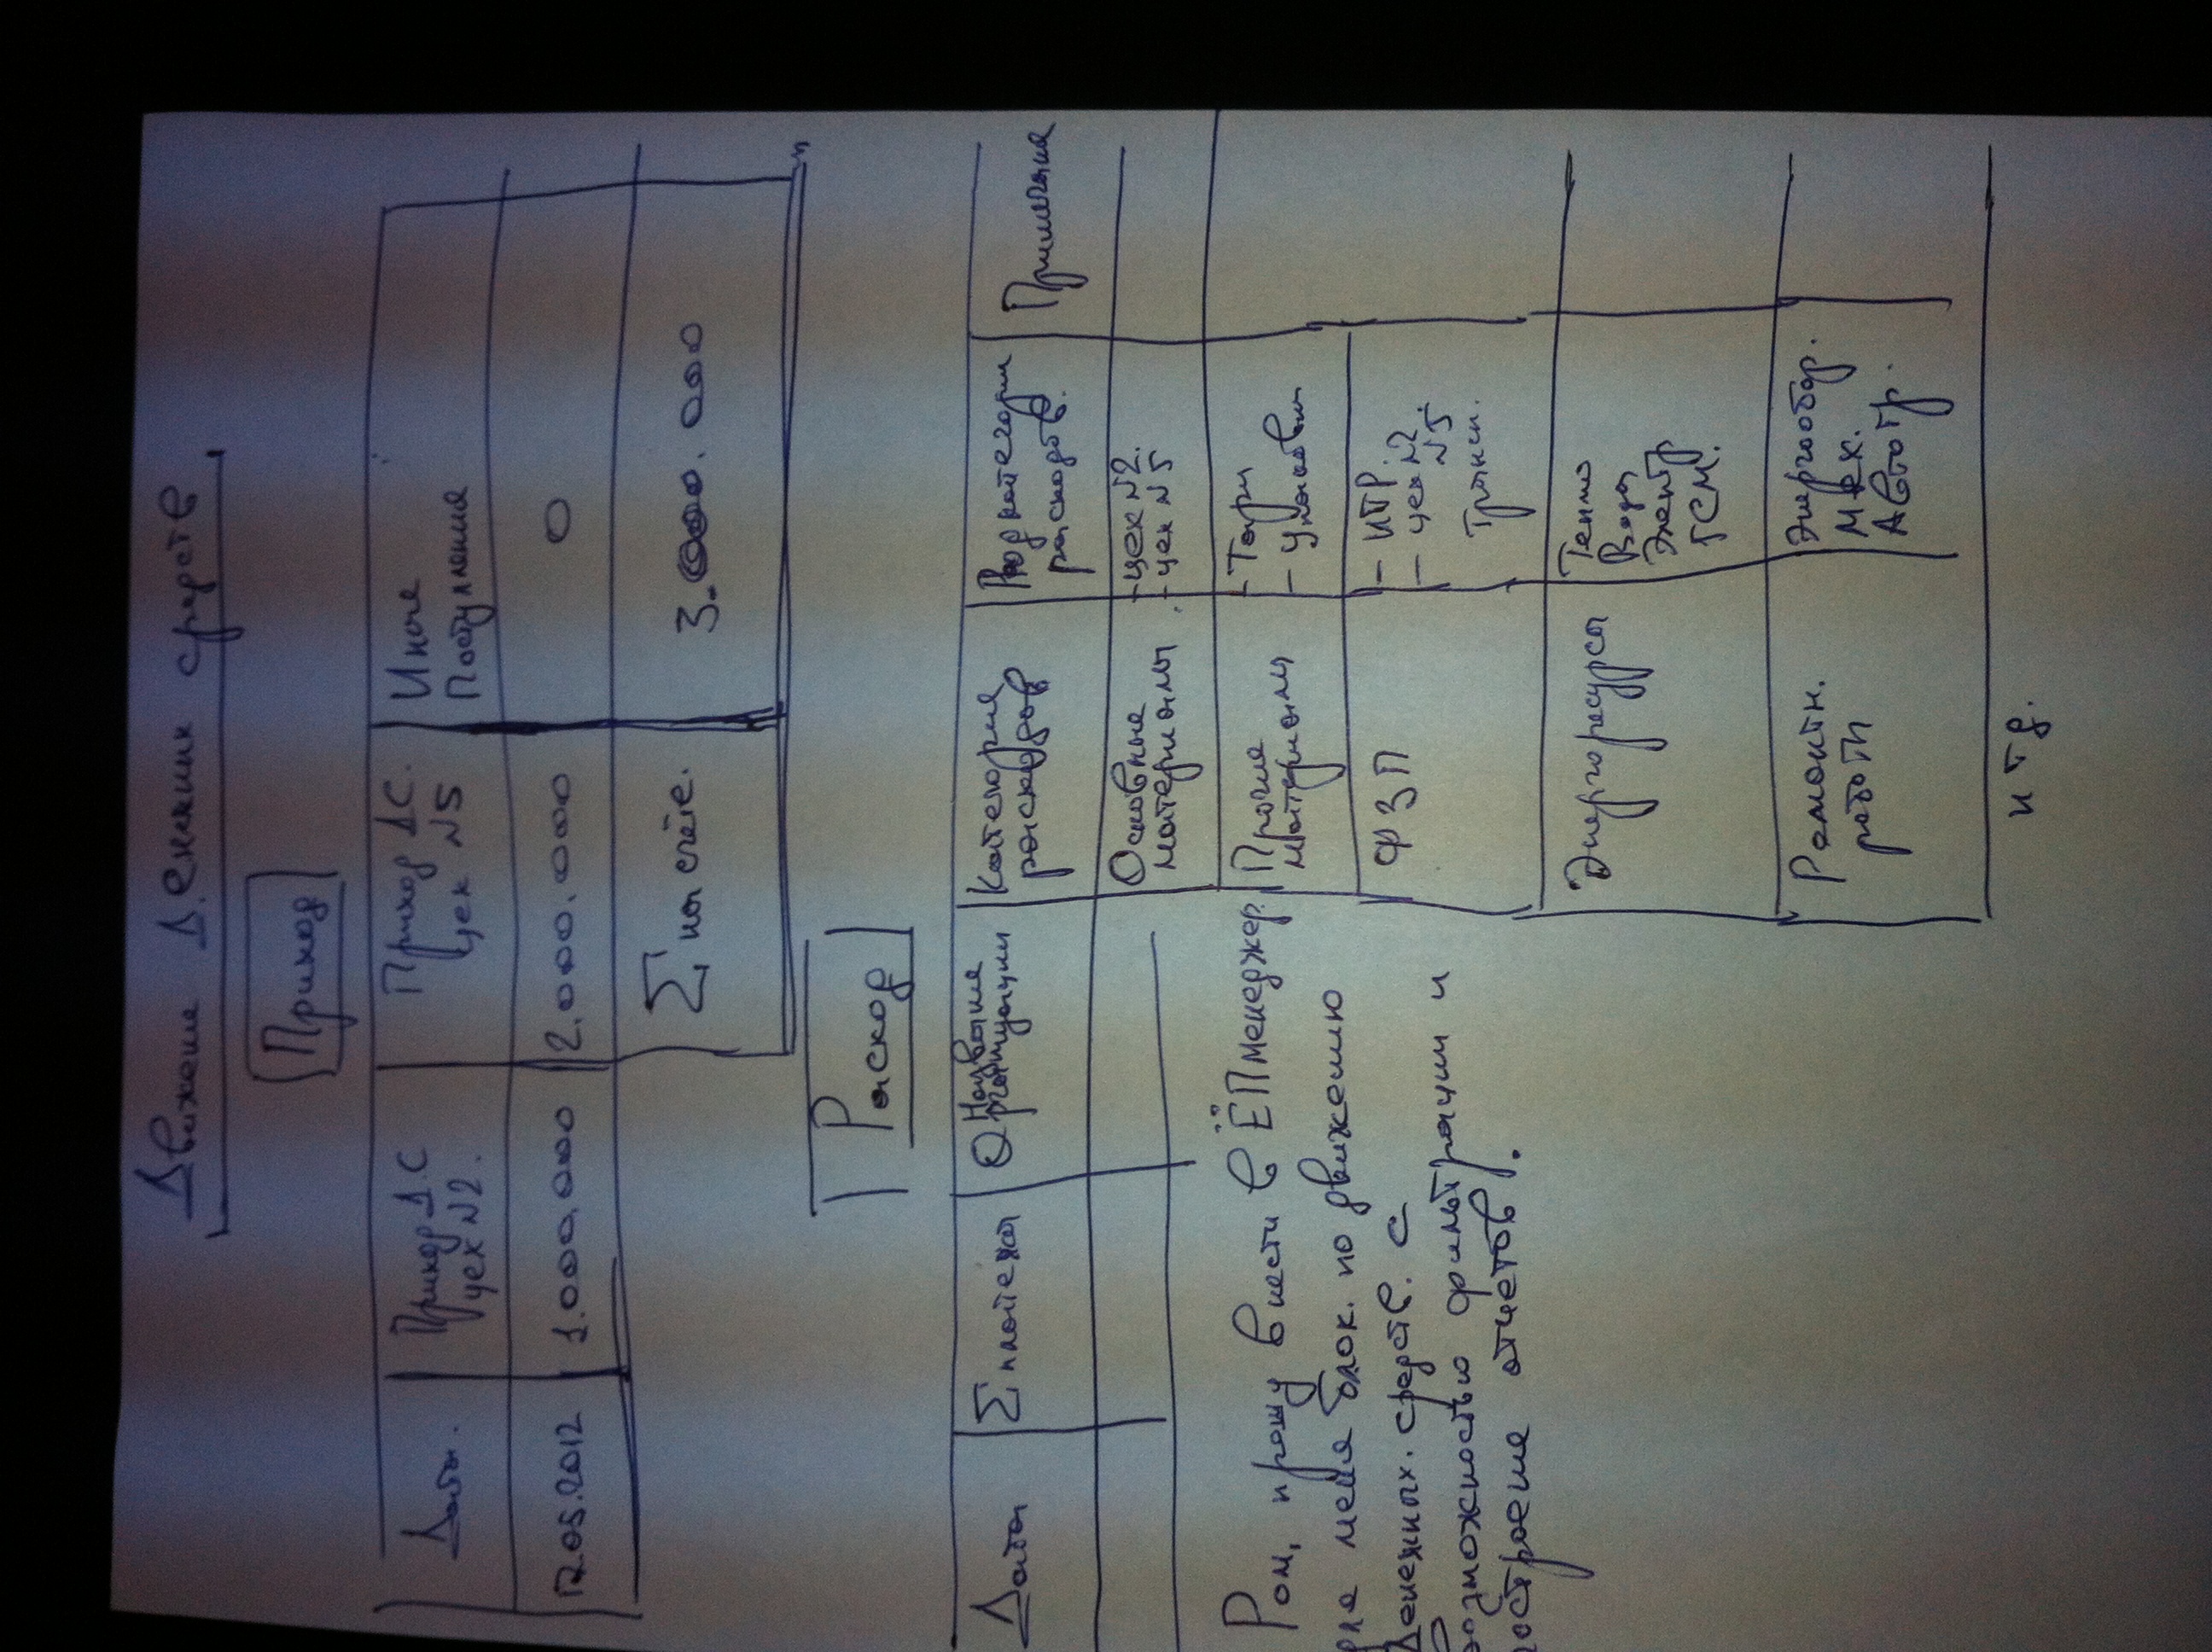 Движение Денежних средств
Приход
Дата. Приход Д.С цех №2. Приход Д.С. цех №5 Иные Поступления
12.05.2012 1.000.000 2.000.000 0
Σ на счёте. 3.000.000
Расход
Дата Σ платежа Название Организации Категория расходов Подкатегории расходов. Примечание
Основные материалы
- цех №2.
- цех №5
Прочие материалы
- Тары
- Упаковки
ФЗП
- ИТР.
- цех №2
№5
Трансп.
Энергоресурсы
Тепло
Вода
Электр
ГСМ.
Ремонтн. работы
Энергообор.
Мех.
Автотр.
и т д.
Ром, прошу внести в ЁПменеджер.
для меня блок. по движению
Денежных. средств. с
Возможностью фильтрации и
построение отчетов.